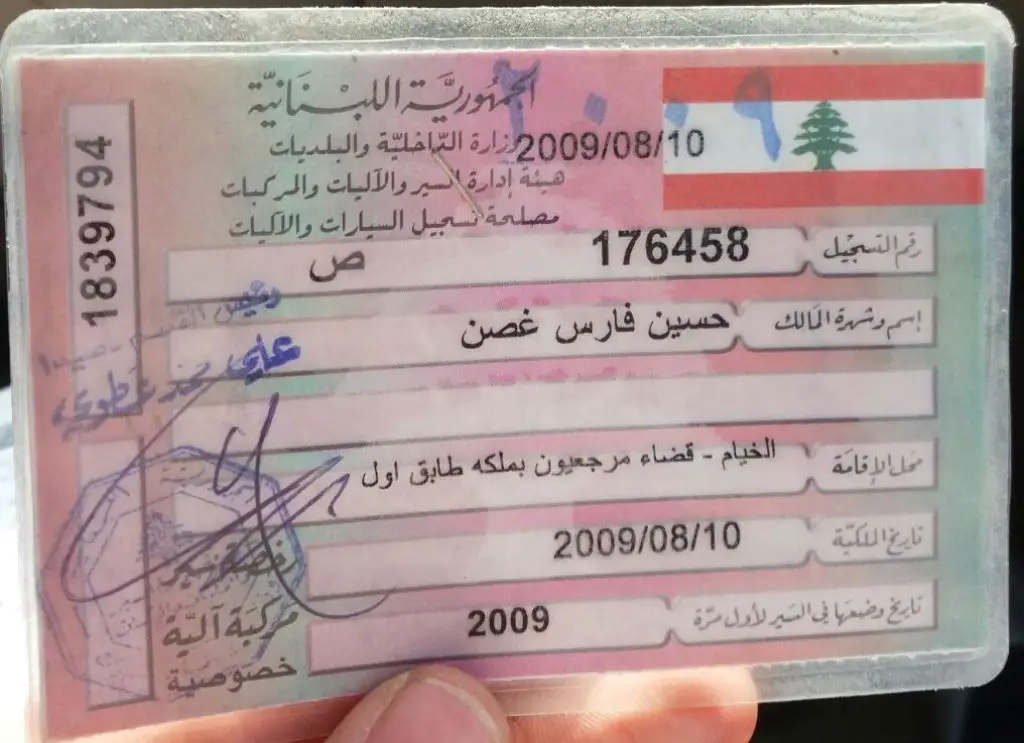 الجمهورية اللبنانية
وزارة الداخلية والبلديات
2009/08/10
هيئة إدارة السير والآليات والمركبات
مصلحة تسجيل السيارات والآليات
1839794
رقم التسجيل 176458 ص
إسم وشهرة المالك حسين فارس غصن
رئيس القسم
علي محمد
محل الإقامة الخيام - قضاء مرجعيون بملكه طابق اول
تاريخ الملكية 2009/08/10
تاريخ وضعها في السير لأول مرة 2009
رخصة سير
مركبة آلية
خصوصية